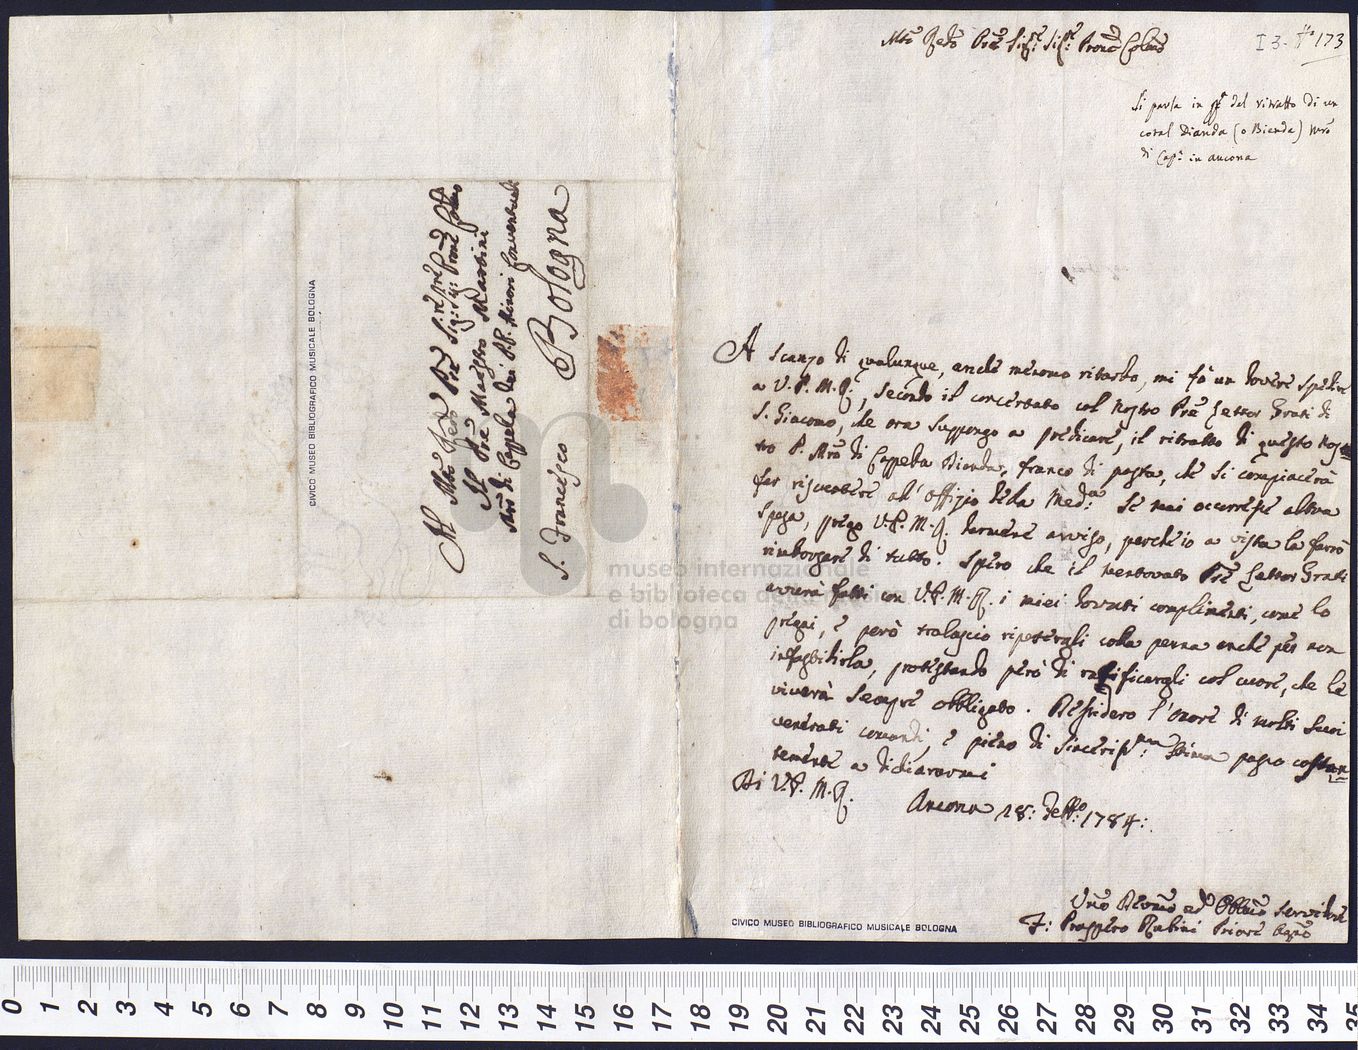 Al Mto Redo Pre Sig:re pre
Sig: Sig: Prone Colmo
Il Pre Maestro Martini
Mro di Cappella dei PP. Minori Conventuali
S. Francesco Bologna
CIVICO MUSEO BIBLIOGRAFICO MUSICALE BOLOGNA
Mto Redo Pre Sigre Sigre Prone Colmo
I 3. 173
Si parla in del ritratto di un
cotal Bianda (o Bienda) Mro
di Capa in Ancona
A scanzo di qualunque, anche menomo ritardo, mi fò un dovere spedire
a V. P. M. R., secondo il concertato col nostro Pre Lettor Grati di
S. Giacomo, che ora suppongo a predicare, il ritratto di questo nos
tro P. Mro di Cappella Bianda, franco di posta, che si compiacerà
far riscuotere all'offizio della Meda: Se mai occorresse altra
spesa, prego V. P. M. R. darmene avviso, perch'io a vista la farrò
rimborzare di tutto. Spero che il mentovato Pre Lettor Grati
averà fatti con V. P. M. R. i miei dovuti complimenti, come lo
pregai, e però tralascio ripeterli colla penna anche per non
infastidirla, protestando però di ratificargli col cuore, che le
viverà sempre obbligato. Desidero l'onore di molti suoi
venerati comandi, e pieno di sinceriss:ma stima passo costan
temente a dichiararmi
Di V. P. M. R.
Ancona 28: 1784:
Umo Devmo ed Obblmo Servidore
F: Prospero Rubini Priore Agno
CIVICO MUSEO BIBLIOGRAFICO MUSICALE BOLOGNA
museo internazionale
e biblioteca della musica
di bologna
0 1 2 3 4 5 6 7 8 9 10 11 12 13 14 15 16 17 18 19 20 21 22 23 24 25 26 27 28 29 30 31 32 33 34 35